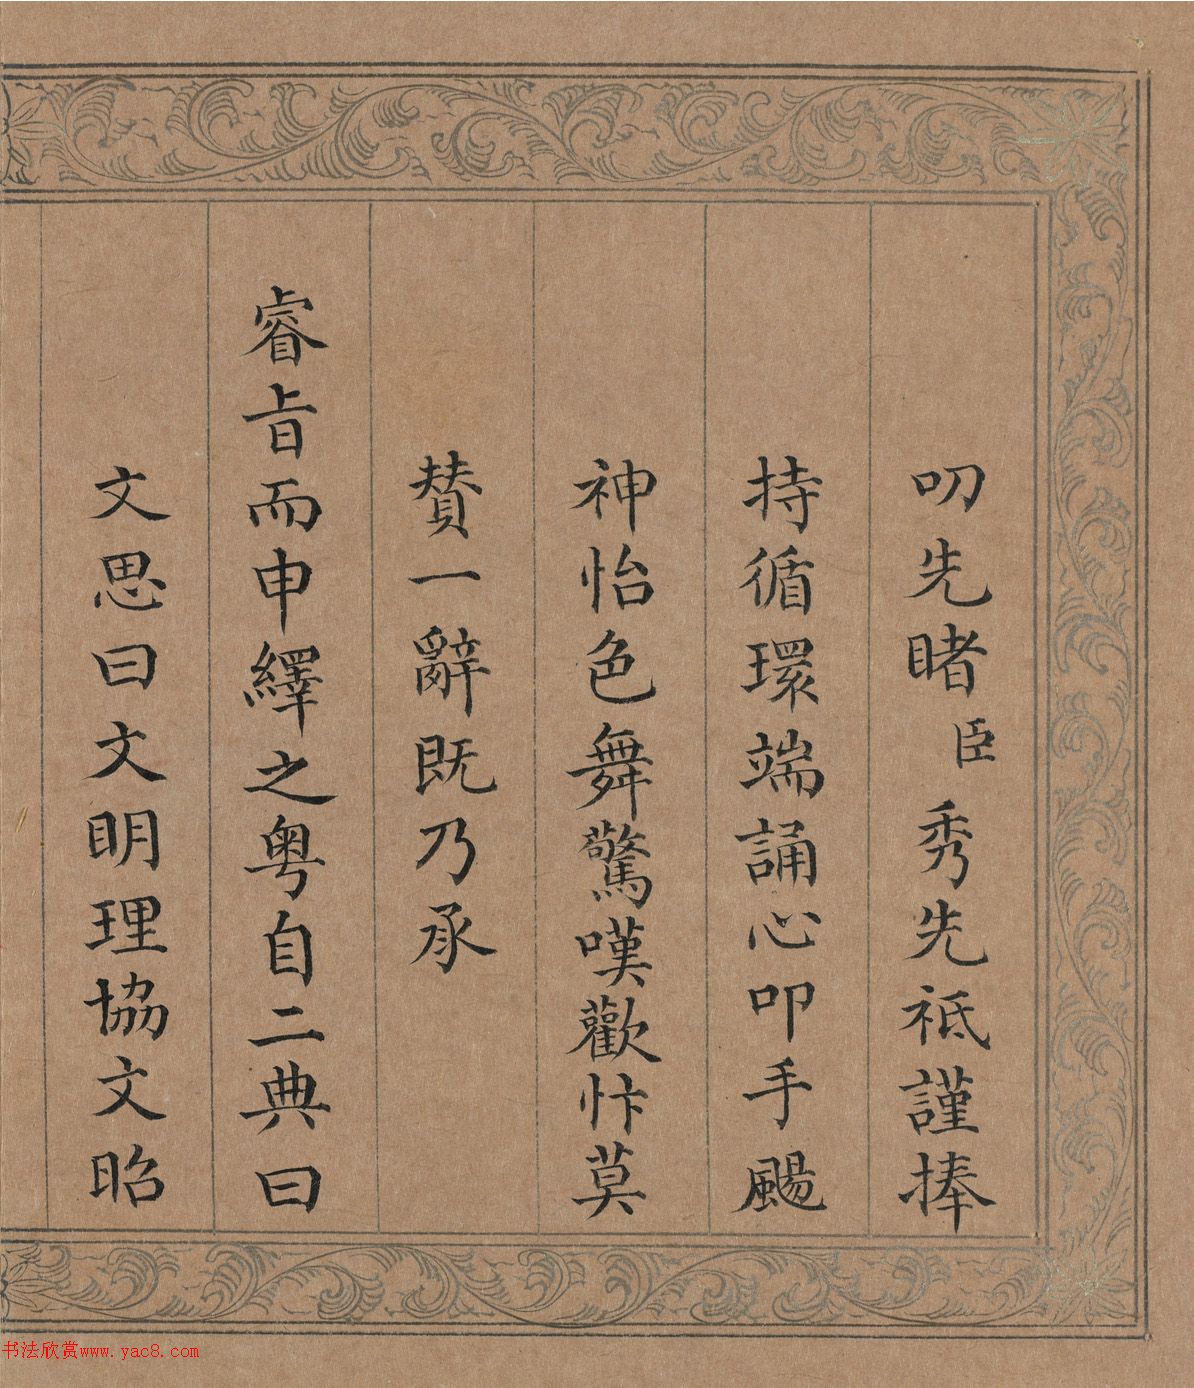 叨先睹臣秀先祗謹捧
持循環端誦心叩手颺
神怡色舞驚嘆歡忭莫
賛一辭既乃承
睿旨而申繹之粤自二典曰
文思曰文明理協文昭
书法欣赏www.yac8.com